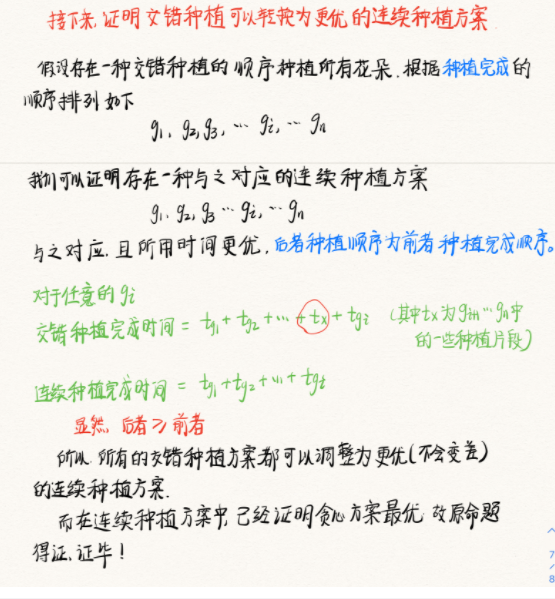 接下来,证明交错种植可以转换为更优的连续种植方案
假设存在一种交错种植的顺序种植所有花朵.根据种植完成的
顺序排列如下
g₁、g₂,g₃、… gᵢ、… gₙ
我们可以证明存在一种与之对应的连续种植方案
g₁. g₂,g₃ … gᵢ、… gₙ
与之对应,且所用时间更优,后者种植顺序为前者种植完成顺序。
对于任意的gᵢ
交错种植完成时间 = tg₁ + tg₂ + … + tx + tgᵢ (其中tx为gᵢ₊₁…gₙ中
的一些种植片段)
连续种植完成时间 = tg₁ + tg₂ + … + tgᵢ
显然,后者 ⩾ 前者
所以.所有的交错种植方案都可以调整为更优(不会变差)
的连续种植方案.
而在连续种植方案中,已经证明贪心方案最优.故原命题
得证.证毕!
7
/
8